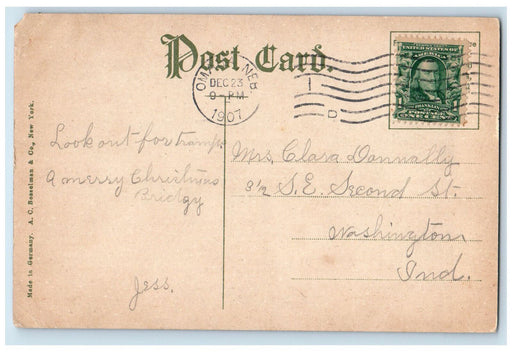 Post Card.
OMAHA, NEB
DEC 23
9-PM
1907
1
D
UNITED STATES OF
FRANKLIN
ONE CENT
Look out for tramps
A merry Christmas
Bridgy
Jess.
Mrs. Clara Donnally
8½ S.E. Second St.
Washington
Ind.
Made in Germany. A. C. Bosselman & Co., New York.